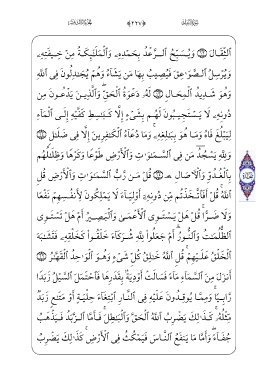 ٱلثِّقَالَ ۝ وَيُسَبِّحُ ٱلرَّعْدُ بِحَمْدِهِۦ وَٱلْمَلَٰٓئِكَةُ مِنْ خِيفَتِهِۦ
وَيُرْسِلُ ٱلصَّوَٰعِقَ فَيُصِيبُ بِهَا مَن يَشَآءُ وَهُمْ يُجَٰدِلُونَ فِى ٱللَّهِ
وَهُوَ شَدِيدُ ٱلْمِحَالِ ۝ لَهُۥ دَعْوَةُ ٱلْحَقِّ وَٱلَّذِينَ يَدْعُونَ مِن
دُونِهِۦ لَا يَسْتَجِيبُونَ لَهُم بِشَىْءٍ إِلَّا كَبَٰسِطِ كَفَّيْهِ إِلَى ٱلْمَآءِ
لِيَبْلُغَ فَاهُ وَمَا هُوَ بِبَٰلِغِهِۦ وَمَا دُعَآءُ ٱلْكَٰفِرِينَ إِلَّا فِى ضَلَٰلٍ ۝
وَلِلَّهِ يَسْجُدُ مَن فِى ٱلسَّمَٰوَٰتِ وَٱلْأَرْضِ طَوْعًا وَكَرْهًا وَظِلَٰلُهُم
بِٱلْغُدُوِّ وَٱلْءَاصَالِ ۝ قُلْ مَن رَّبُّ ٱلسَّمَٰوَٰتِ وَٱلْأَرْضِ قُلِ
ٱللَّهُ قُلْ أَفَٱتَّخَذْتُم مِّن دُونِهِۦٓ أَوْلِيَآءَ لَا يَمْلِكُونَ لِأَنفُسِهِمْ نَفْعًا
وَلَا ضَرًّا قُلْ هَلْ يَسْتَوِى ٱلْأَعْمَىٰ وَٱلْبَصِيرُ أَمْ هَلْ تَسْتَوِى
ٱلظُّلُمَٰتُ وَٱلنُّورُ أَمْ جَعَلُوا۟ لِلَّهِ شُرَكَآءَ خَلَقُوا۟ كَخَلْقِهِۦ فَتَشَٰبَهَ
ٱلْخَلْقُ عَلَيْهِمْ قُلِ ٱللَّهُ خَٰلِقُ كُلِّ شَىْءٍ وَهُوَ ٱلْوَٰحِدُ ٱلْقَهَّٰرُ ۝
أَنزَلَ مِنَ ٱلسَّمَآءِ مَآءً فَسَالَتْ أَوْدِيَةٌۢ بِقَدَرِهَا فَٱحْتَمَلَ ٱلسَّيْلُ زَبَدًا
رَّابِيًا وَمِمَّا يُوقِدُونَ عَلَيْهِ فِى ٱلنَّارِ ٱبْتِغَآءَ حِلْيَةٍ أَوْ مَتَٰعٍ زَبَدٌ
مِّثْلُهُۥ كَذَٰلِكَ يَضْرِبُ ٱللَّهُ ٱلْحَقَّ وَٱلْبَٰطِلَ فَأَمَّا ٱلزَّبَدُ فَيَذْهَبُ
جُفَآءً وَأَمَّا مَا يَنفَعُ ٱلنَّاسَ فَيَمْكُثُ فِى ٱلْأَرْضِ كَذَٰلِكَ يَضْرِبُ